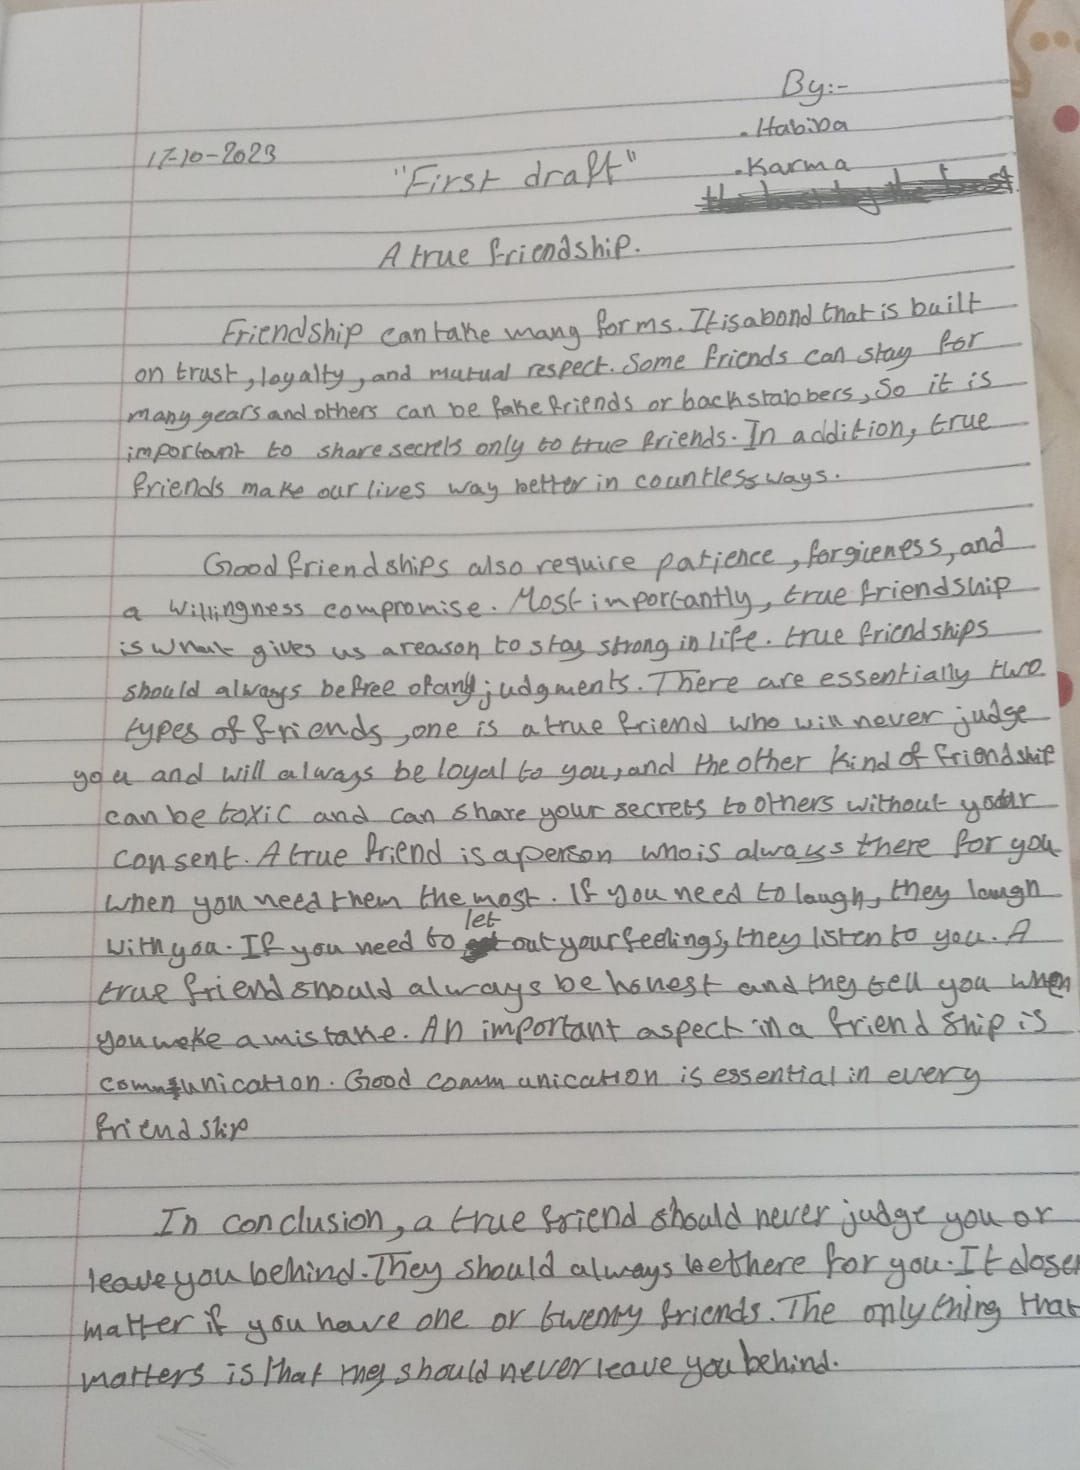 By:-
. Habiba
17-10-2023
. Karma
"First draft"
A true friendship.
Friendship can take many forms. It is a bond that is built
on trust, loyalty, and mutual respect. Some friends can stay for
many years and others can be fake friends or backstabbers, So it is
important to share secrets only to true friends. In addition, true
friends make our lives way better in countless ways.
Good friendships also require patience, forgiveness, and
a willingness compromise. Most importantly, true friendship
is what gives us a reason to stay strong in life. true friendships
should always be free of any judgments. There are essentially two
types of friends, one is a true friend who will never judge
you and will always be loyal to you, and the other kind of friendship
can be toxic and can share your secrets to others without your
consent. A true friend is a person who is always there for you
when you need them the most. If you need to laugh, they laugh
with you. If you need to let out your feelings, they listen to you. A
true friend should always be honest and they tell you when
you make a mistake. An important aspect in a friendship is
communication. Good communication is essential in every
friendship
In conclusion, a true friend should never judge you or
leave you behind. They should always be there for you. It
matter if you have one or twenty friends. The only thing that
matters is that they should never leave you behind.